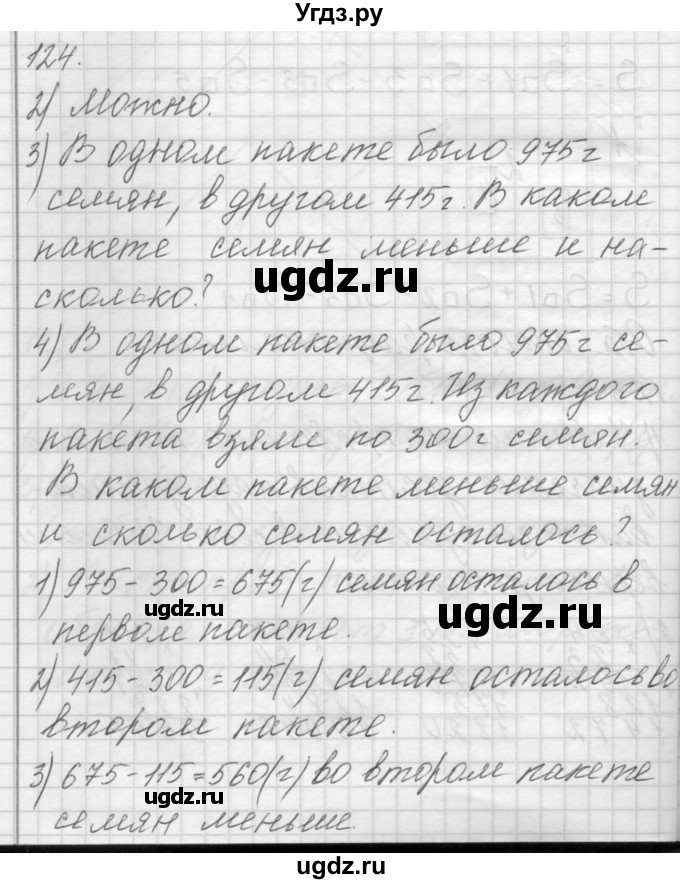 Угдз.ру
124.
2) Можно.
3) В одном пакете было 975г
семян, в другом 415г. В каком
пакете семян меньше и на-
сколько?
ugdz.ru
4) В одном пакете было 975г се-
мян, в другом 415г. Из каждого
пакета взяли по 300г семян.
В каком пакете меньше семян
и сколько семян осталось?
1) 975 - 300 = 675(г) семян осталось в
ugdz.ru
ugdz.ru
первом пакете.
2) 415 - 300 = 115(г) семян осталось во
втором пакете.
3) 675 - 115 = 560(г) во втором пакете
ugdz.ru
семян меньше.
ugdz.ru